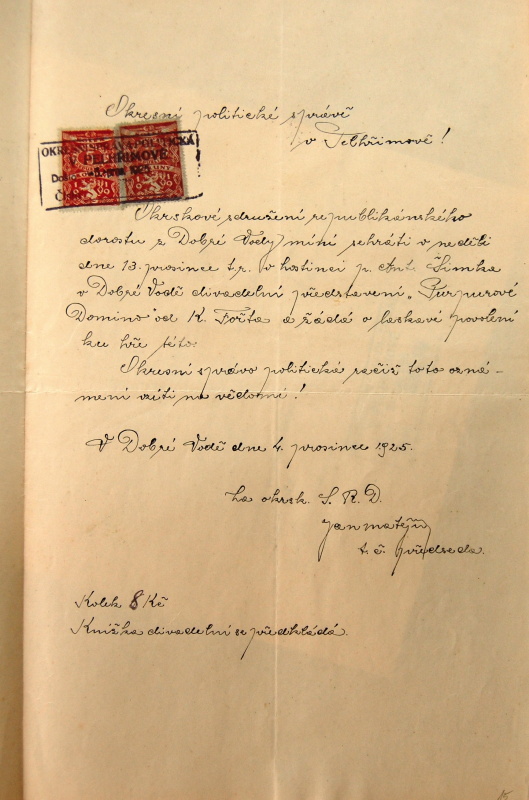 Okresní politické správě
v Pelhřimově!
OKRESNÍ SPRÁVA POLITICKÁ
V PELHŘIMOVĚ
Došlo
1925
Okrskové sdružení republikánského
dorostu z Dobré Vody míní sehráti v neděli
dne 13. prosince t.r. v hostinci p. Ant. Šimka
v Dobré Vodě divadelní představení „Purpurové
Domino" od K. Fořta a žádá o laskavé povolení
ku hře této.
Okresní správo politická račiž toto ozná-
mení vzíti na vědomí!
V Dobré Vodě dne 4. prosince 1925.
Za okrsk. S. R. D.
Jan Matějů
t. č. předseda.
Kolek 8 Kč
Knížka divadelní se předkládá.
15